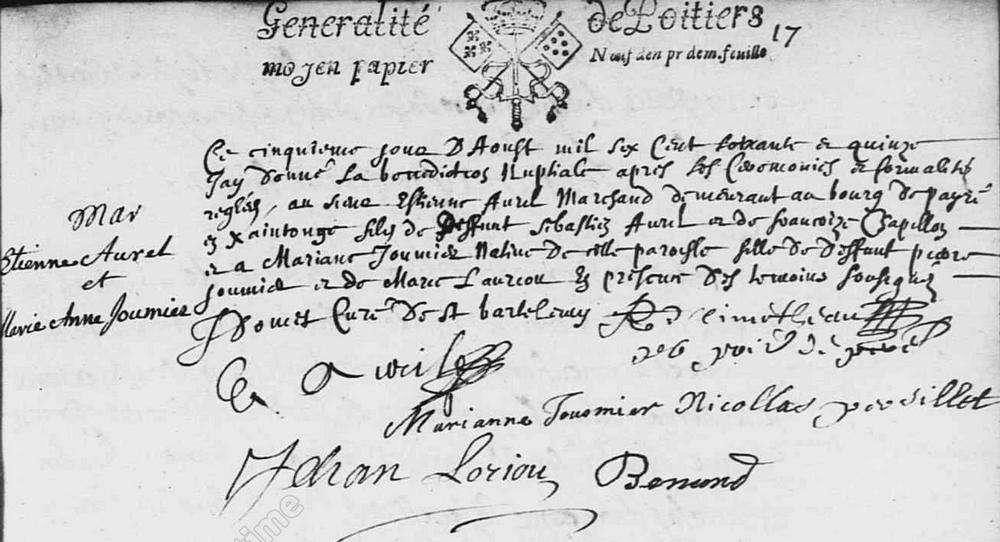 Generalité de Poitiers 17
moyen papier Neuf den pr dem. feuille
Ce cinquieme jour D'Aoust mil six Cent soixante et quinze
J'ay donné La benediction Nuptiale apres les Ceremonies et formalités
reglées, au sieur Estienne Aurel Marchand demeurant au bourg de payré
en Xaintonge fils de deffunt sebastien Aurel et de francoize Chapellon
et a Mariane Joumier Native de cette paroisse fille de deffunt pierre
Joumier et de Marie Lauriou En presence des temoins soussignés
Curé De st bartelemy
Mar
Etienne Aurel
et
Marie Anne Joumier
Marianne Jouomier Nicollas
Jehan Loriou Bemond